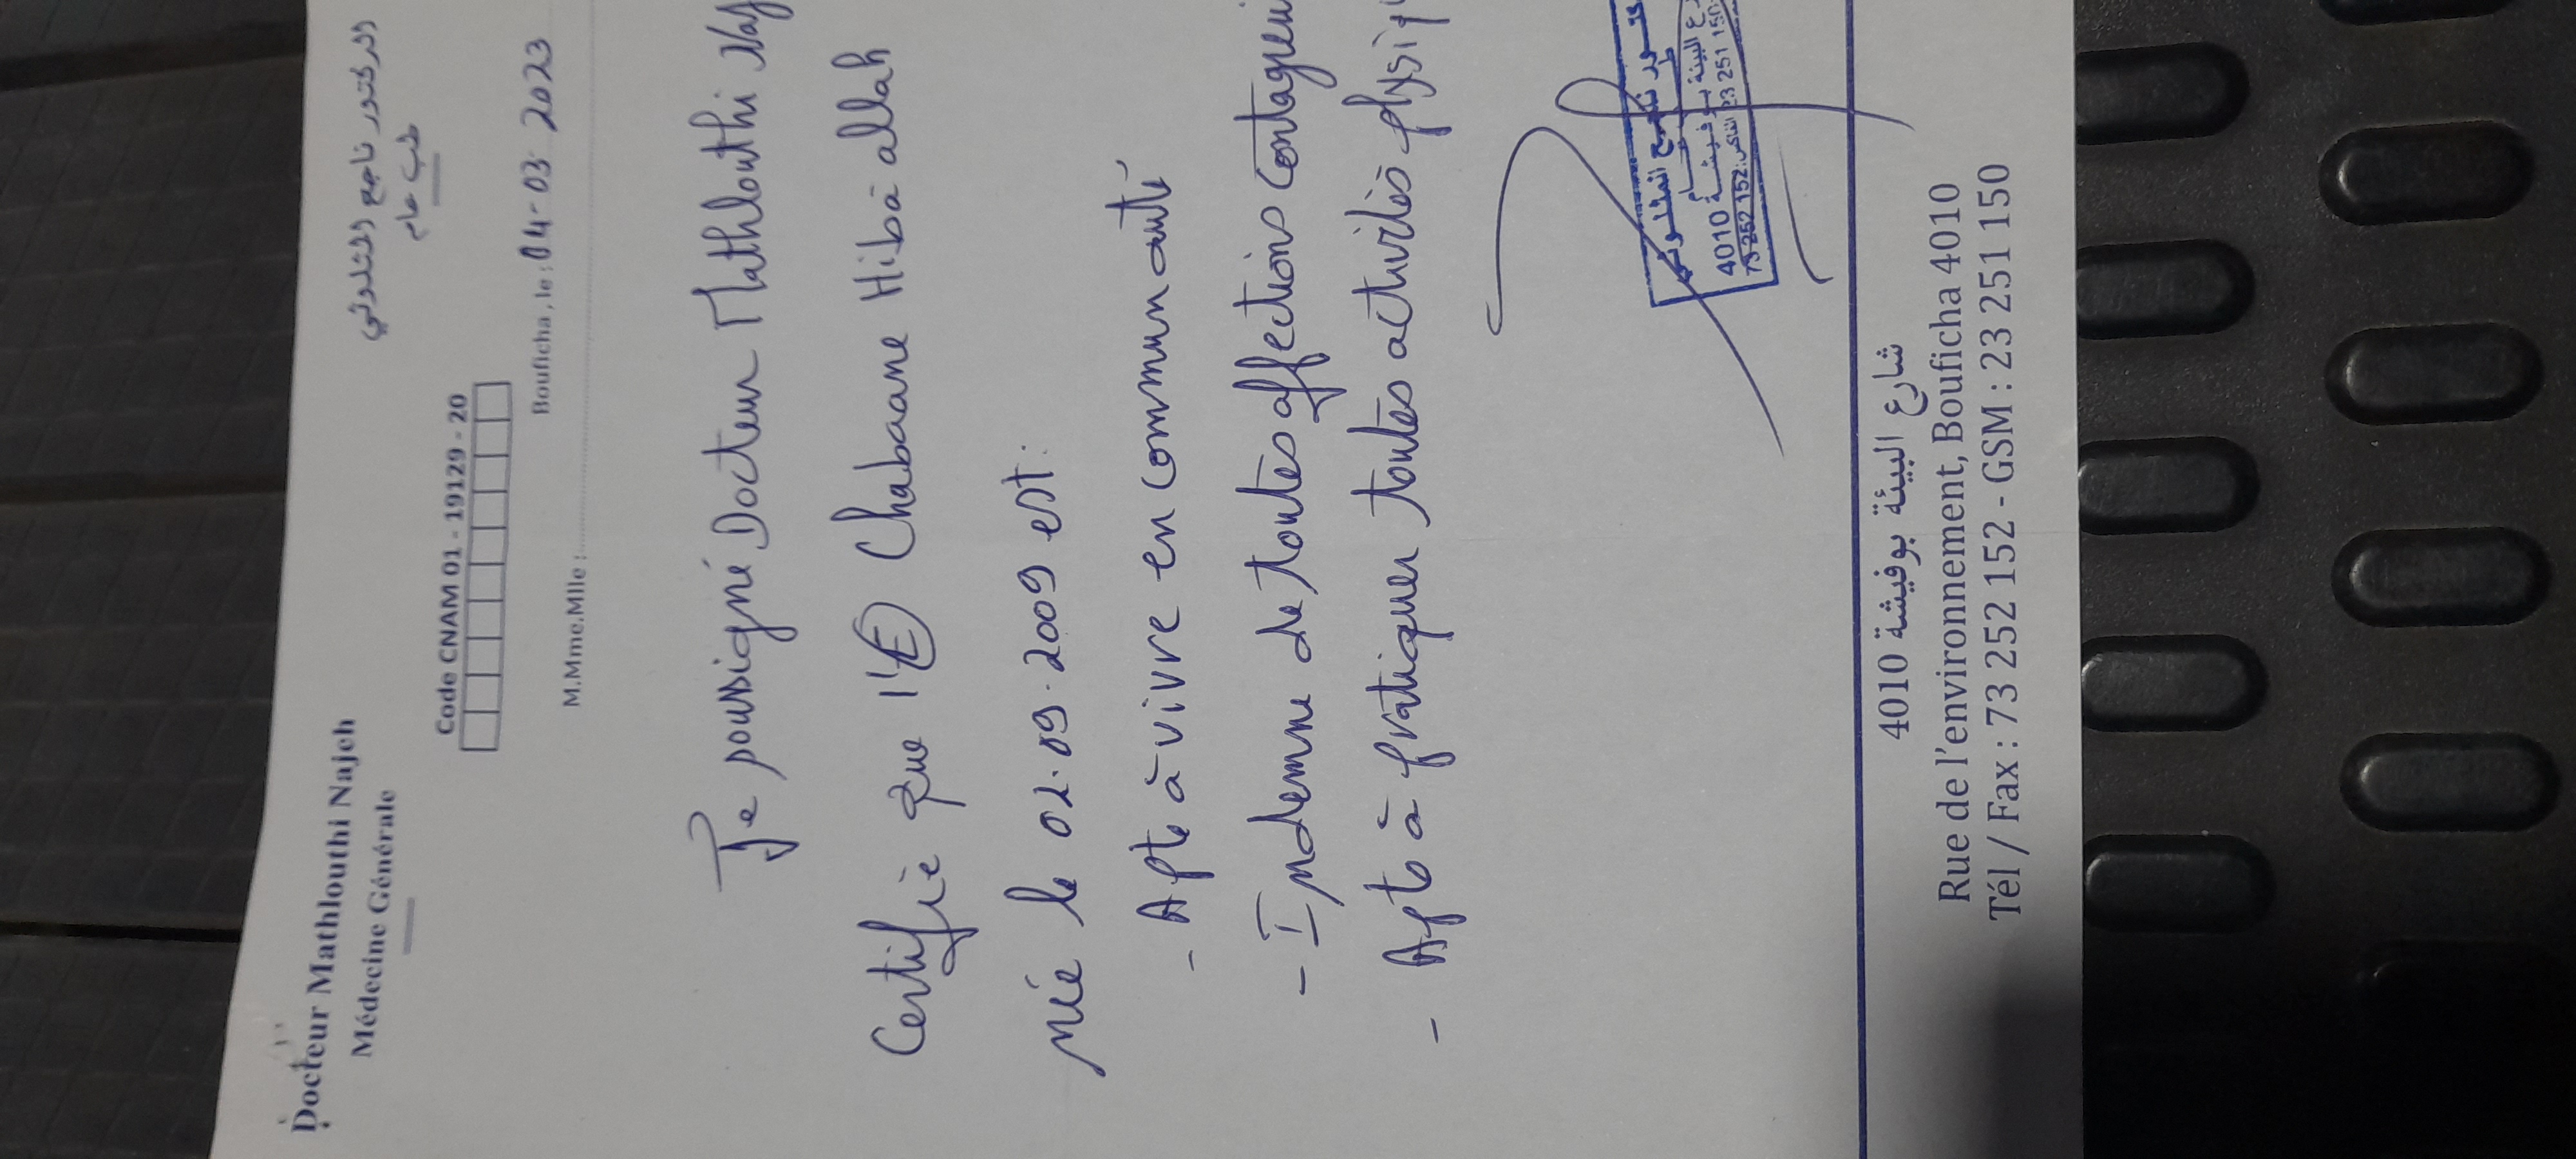 Docteur Mathlouthi Najeh
Médecine Générale
الدكتور ناجح المثلوثي
طب عام
Code CNAM 01 - 19129 - 20
Bouficha, le : 04-03-2023
M.Mme.Mlle :
Je soussigné Docteur Mathlouthi Naj
Certifie que l'E Chabaane Hiba allah
née le 02.09.2009 est:
- Apte à vivre en communauté
- Indemne de toutes affections contagieu
- Apte à pratiquer toutes activités physiq
المثلوثي
4010
73 252 152 23 251 150
شارع البيئة بوفيشة 4010
Rue de l'environnement, Bouficha 4010
Tél / Fax : 73 252 152 - GSM : 23 251 150